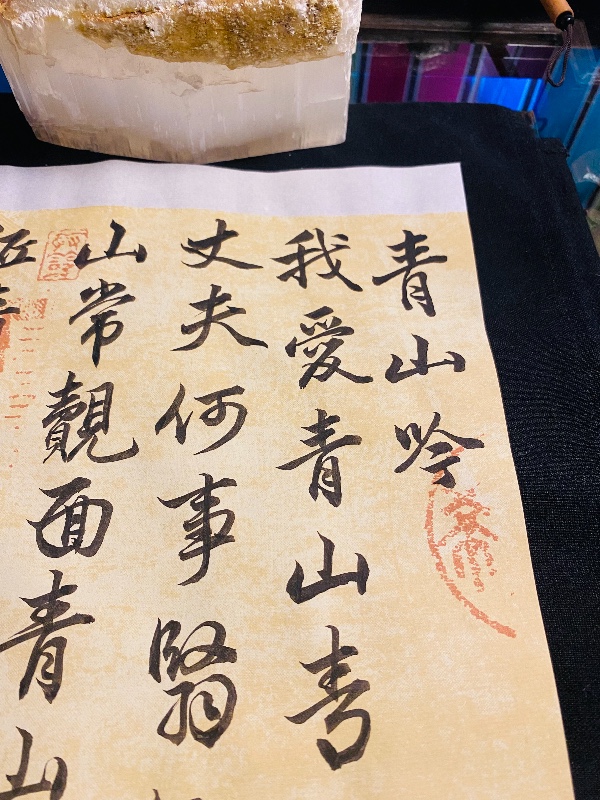 青山吟
我愛青山青
丈夫何事翳
山常覿面青山